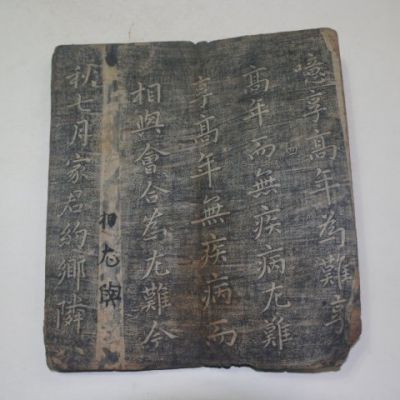 噫享高年為難享
高年而無疾病尤難
享高年無疾病而
相與會合為尤難今
秋七月家君約鄉隣